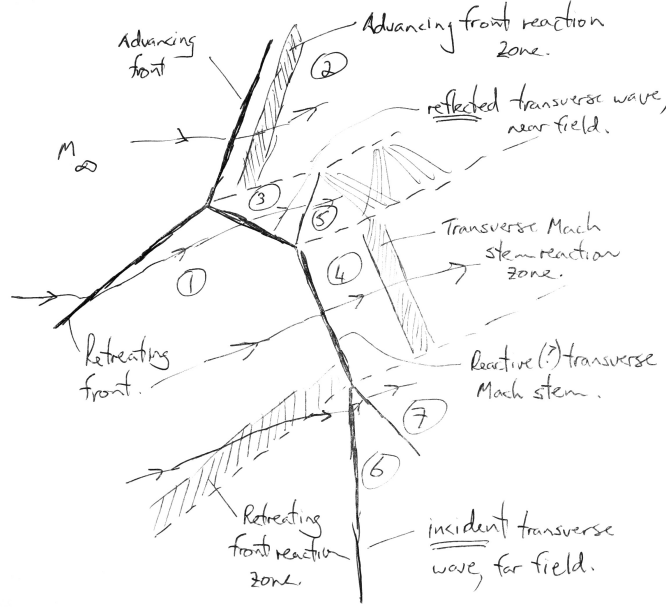 Advancing
front
Advancing front reaction
zone.
②
M∞
reflected transverse wave,
near field.
③
⑤
Transverse Mach
stem reaction
zone.
④
①
Retreating
front.
Reactive(?) transverse
Mach stem.
⑦
⑥
Retreating
front reaction
zone.
incident transverse
wave, far field.